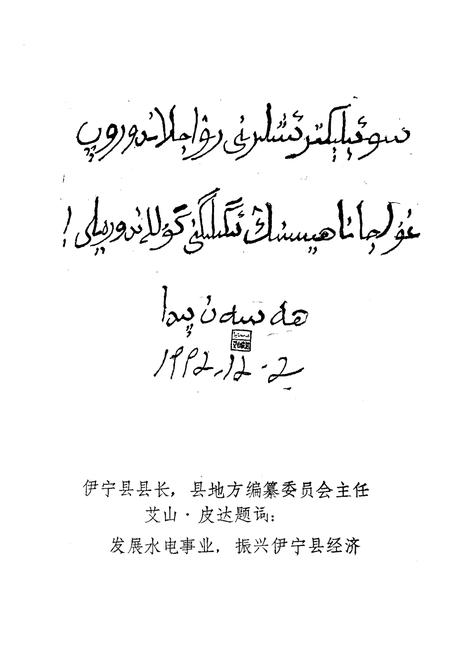 سۇ ئېلېكتىر ئىشلىرىنى راۋاجلاندۇرۇپ
غۇلجا ناھىيىسىنىڭ ئىگىلىكىنى گۈللەندۈرەيلى!
ھەسەن پىدا
1992.12.2
伊宁县县长，县地方编纂委员会主任
艾山·皮达题词：
发展水电事业，振兴伊宁县经济